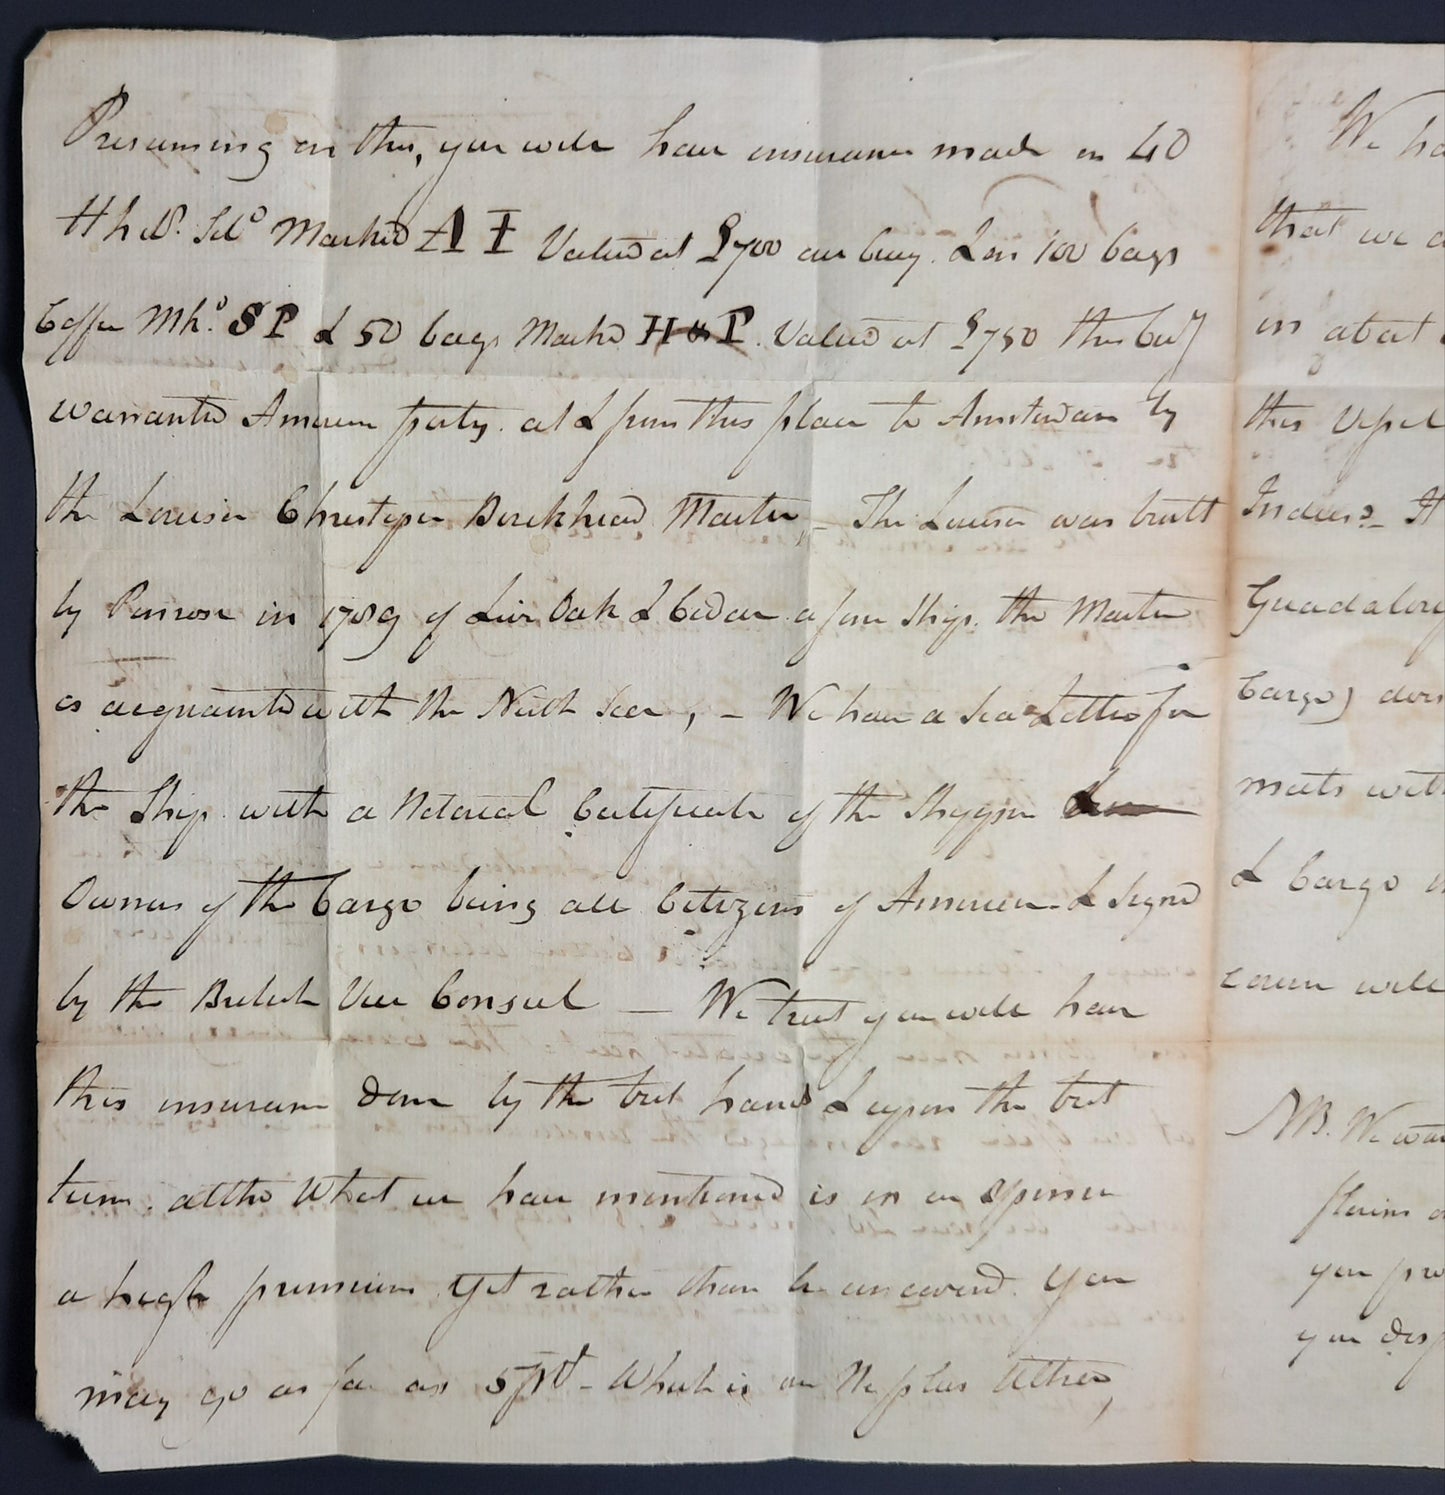 Presuming on this, you will have insurance made on 40
Hhds. Marked AI Valued at £700 our Cury. & on 100 bags
Coffee Mkd. SP & 50 bags Marked H&P. Valued at £750 this Cuy
Warranted American property. at & from this place to Amsterdam by
the Louisa Christopher Birckhead Master, – The Louisa was built
by Penrose in 1789 of Live Oak & Cedar a fine Ship. the Master
is acquainted with the North Sea, – We have a Sea Letter for
the Ship with a Notarial Certificate of the Shippers
Owners of the Cargo being all Citizens of America & Signed
by the British Vice Consul — We trust you will have
this insurance done by the best hands & upon the best
terms. altho What we have mentioned is in our Opinion
a high premium Yet rather than be uncovered You
may go as far as 5 PCt – Which is our Ne plus Ultra,
We ha
that we a
in about
this Vessel
Indies –
Guadaloup
Cargo)
meets with
& Cargo
will
NB. We
you pro
you